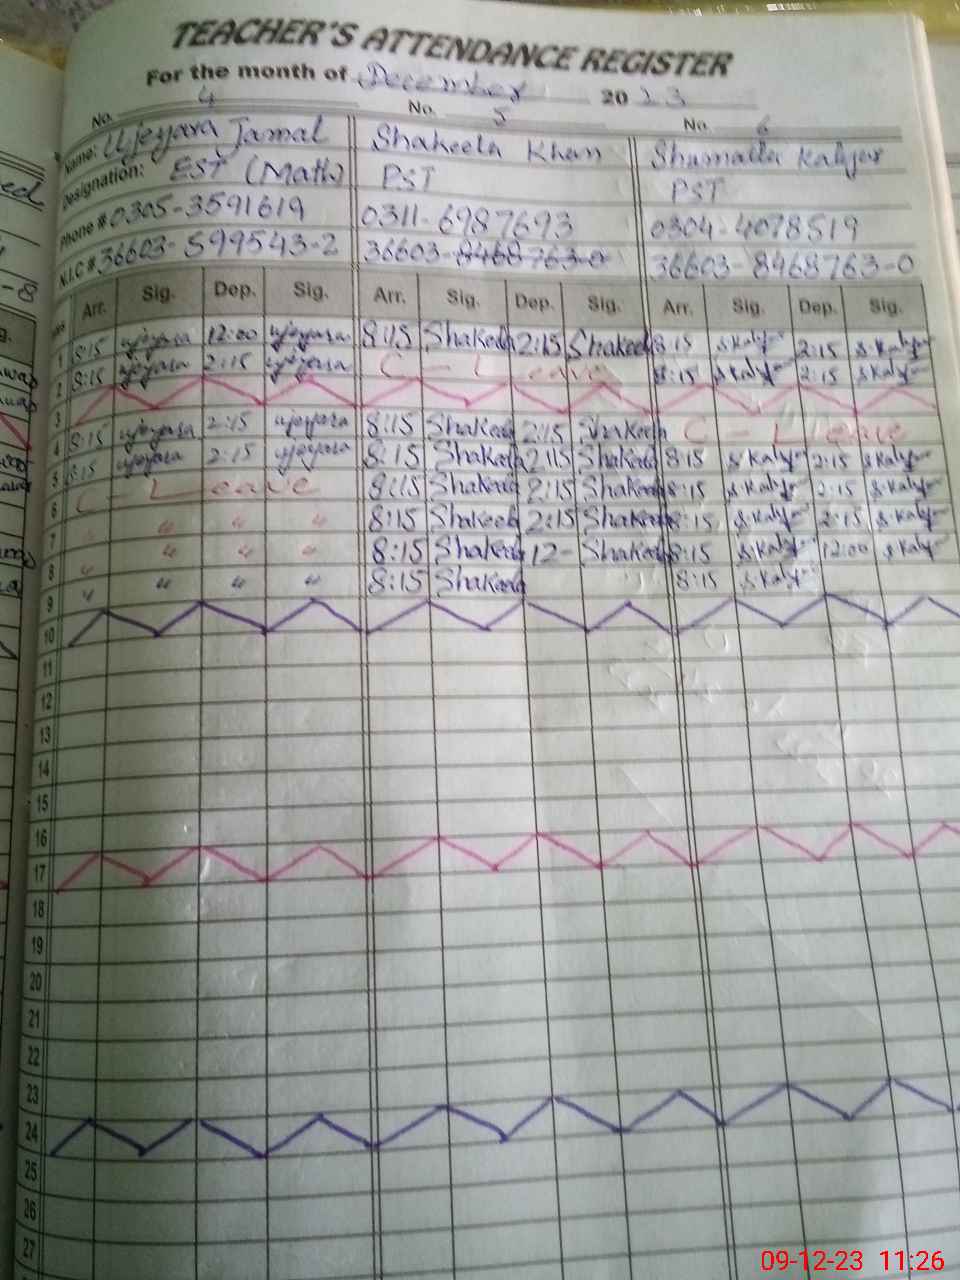 TEACHER'S ATTENDANCE REGISTER
For the month of December 2023
No. 4 No. 5 No. 6
Name: Ujeyara Jamal Shakeela Khan Shumaila Kalyar
Designation: EST (Math) PST PST
Phone # 0305-3591619 0311-6987693 0304-4078519
N.I.C # 36603-599543-2 36603-8468763-0 36603-8468763-0
Arr. Sig. Dep. Sig. Arr. Sig. Dep. Sig. Arr. Sig. Dep. Sig.
1 8:15 ujeyara 12:00 ujeyara 8:15 Shakeela 2:15 Shakeela 8:15 S.Kalyar 2:15 S.Kalyar
2 8:15 ujeyara 2:15 ujeyara C - Leave 8:15 S.Kalyar 2:15 S.Kalyar
3
4 8:15 ujeyara 2:15 ujeyara 8:15 Shakeela 2:15 Shakeela C - Leave
5 8:15 ujeyara 2:15 ujeyara 8:15 Shakeela 2:15 Shakeela 8:15 S.Kalyar 2:15 S.Kalyar
6 C - Leave 8:15 Shakeela 2:15 Shakeela 8:15 S.Kalyar 2:15 S.Kalyar
7 " " " " 8:15 Shakeela 2:15 Shakeela 8:15 S.Kalyar 2:15 S.Kalyar
8 " " " " 8:15 Shakeela 12- Shakeela 8:15 S.Kalyar 12:00 S.Kalyar
9 " " " " 8:15 Shakeela 8:15 S.Kalyar
10
11
12
13
14
15
16
17
18
19
20
21
22
23
24
25
26
27
09-12-23 11:26